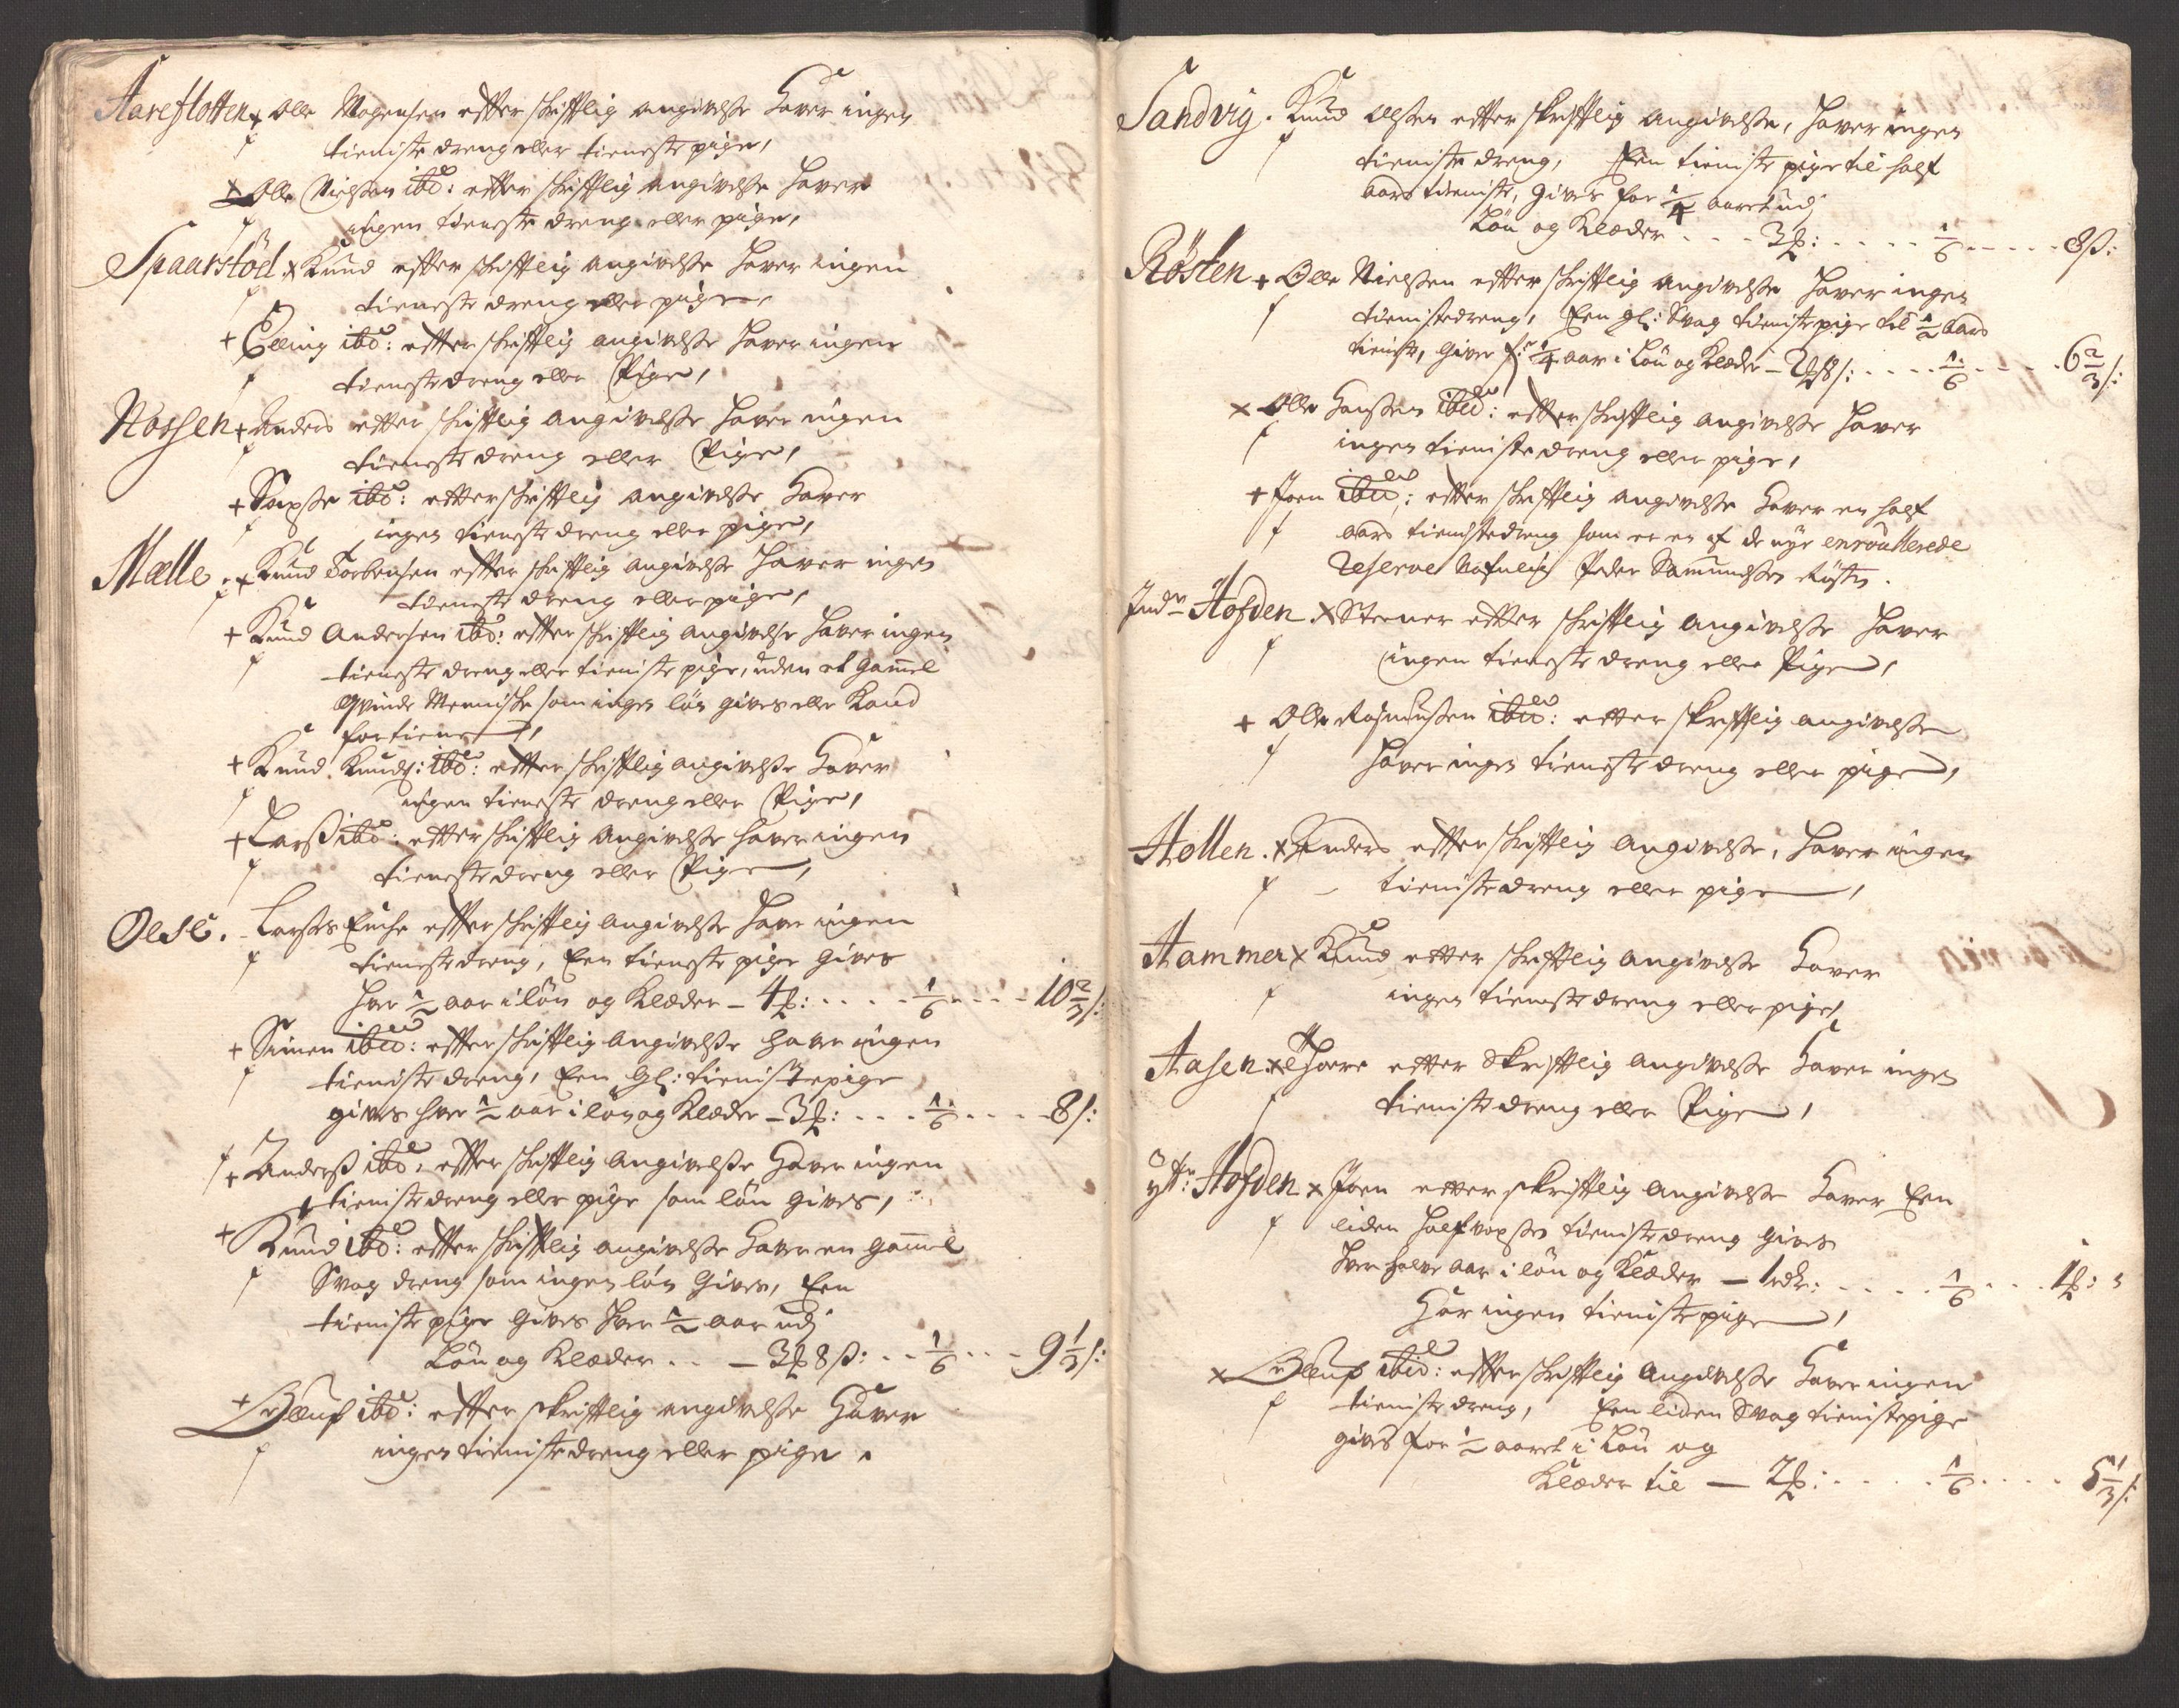 Aareflotten + Olle Mogensen effter schrifftlig angivelsse haver ingen
tieniste dreng eller tieneste pige,
+ Olle Nielsen ibd: effter schrifftlig angivelsse haver
ingen tieneste dreng eller pige,
Spaarstöd + Knud effter schrifftlig angivelsse haver ingen
tieneste dreng eller pige,
+ Elling ibd: effter schrifftlig angivelsse haver ingen
tieneste dreng eller Pige,
Nossen + Anders effter schrifftlig angivelsse haver ingen
tieneste dreng eller Pige,
+ ibd: effter schrifftlig angivelsse haver
ingen tieneste dreng eller pige,
Mælle + Knud Torbensen effter schrifftlig angivelsse haver ingen
tieneste dreng eller pige,
+ Knud Andersen ibd: effter schrifftlig angivelse haver ingen
tieneste dreng eller tieniste pige, uden et gammel
Qvinde Menniske som ingen lön gives eller kand
fortiene,
+ Knud Knuds: ibd: effter schrifftlig angivelsse haver
ingen tieneste dreng eller Pige,
+ Larss ibd: effter schrifftlig angivelsse haver ingen
tieneste dreng eller Pige,
Olse. Larsses Enche effter schrifftlig angivelsse haver ingen
tieneste dreng, Een tieneste pige gives
hver 1/2 aar i lön og Klæder - 4 : . . . 1/6 . . . 10 2/3 s:
+ Simen ibid: effter schrifftlig angivelsse haver ingen
tieniste dreng, Een gl: tieniste pige
gives hver 1/2 aar i lön og Klæder - 3 : . . . 1/6 . . . 8 s:
+ Anderss ibd: effter schrifftlig angivelsse haver ingen
tieniste dreng eller pige som lön gives,
+ Knud ibd: effter schrifftlig angivelsse haver en gammel
Svag dreng som ingen lön gives, Een
tieniste pige gives hver 1/2 aar udj
Lön og Klæder . . - 3 8 s: . . 1/6 . . . 9 1/3 s:
+ Oluf ibd: effter skrifftlig angivelsse haver
ingen tieniste dreng eller pige.
Sandvig. Knud Olssen effter skrifftlig angivelsse, haver ingen
tieniste dreng, Een tieniste pige til half
aars tieniste, gives for 1/4 aaret udj
Lön og Klæder . . . 3 : . . . 1/6 . . . 8 s:
Rösten + Olle Nielssen effter schrifftlig angivelsse haver ingen
tieniste dreng, Een gl: Svag tieniste pige til 1/2 aars
tieniste, giver for 1/4 aar i Lön og Klæder - 2 8 s: . . . 1/6 . . . 6 2/3 s:
+ Olle Hanssen ibid: effter schrifftlig angivelsse haver
ingen tieniste dreng eller pige,
+ Joen ibid: effter schrifftlig angivelsse haver en half
aars tieniste dreng som er en af de nye enroullerede
Reserve Nafnlig Peder Samundssen Rösten.
Indr Hofden + Steener effter schrifftlig angivelsse haver
ingen tieneste dreng eller Pige,
+ Olle Rasmussen ibid: effter skrifftlig angivelsse
haver ingen tieneste dreng eller pige,
Hollen. + Anders effter schrifftlig angivelsse, haver ingen
tieniste dreng eller pige,
Hammer + Knud effter schrifftlig angivelsse haver
ingen tieniste dreng eller pige,
Aasen + Thore effter Skrifftlig angivelsse haver ingen
tieniste dreng eller Pige,
ytr: Hofden + Joen effter skrifftlig angivelsse haver Een
liden halfvoxsen tieniste dreng gives
hver halve aar i lön og Klæder - 1 rdr: . . . 1/6 . . . 1 :
har ingen tieniste pige,
+ Oluf ibid: effter schrifftlig angivelsse haver ingen
tieniste dreng, Een liden Svag tienistepige
gives for 1/2 aaret i Lön og
Klæder til - 2 : . . . 1/6 . . . 5 1/3 s: